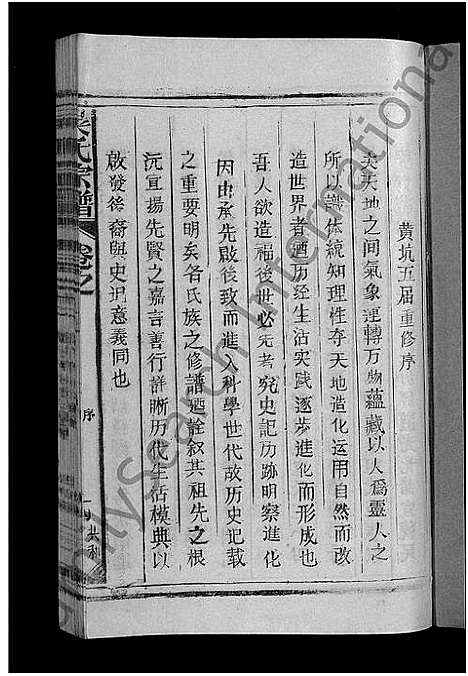 黄坑五届重修序
夫天地之间氣象運轉万物蘊藏以人爲靈人之
所以識体統知理性夺天地造化运用自然而改
造世界者迺历经生活实践逐步進化而形成也
吾人欲造福後世必先考究史記历跡明察進化
因由承先啟後致而進入科學世代故历史记载
之重要明矣各氏族之修譜迺詮叙其祖先之根
沅宣揚先賢之嘉言善行詳晰历代生活模典以
啟發後裔與史记意義同也
氏宗譜
卷之
序
共和
International